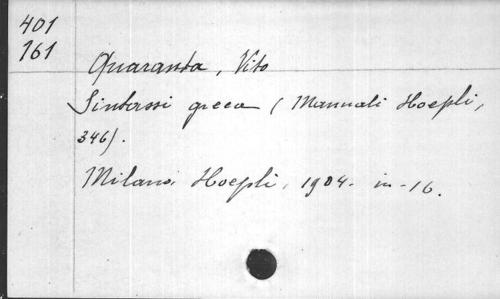 401
161
Quaranta, Vito
Sintassi greca (Manuali Hoepli,
346).
Milano. Hoepli. 1904. in-16.